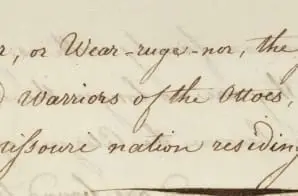 r, or Wear-ruge-nor, the
d Warriors of the Ottoes,
issoure nation residing